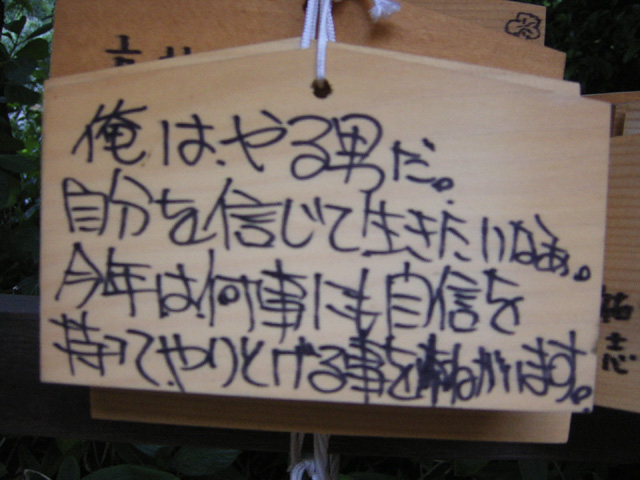 俺は、やる男だ。
自分を信じて生きたいなぁ。
今年は、何事にも自信を
持って、やりとげる事を ねがいます。
祐志